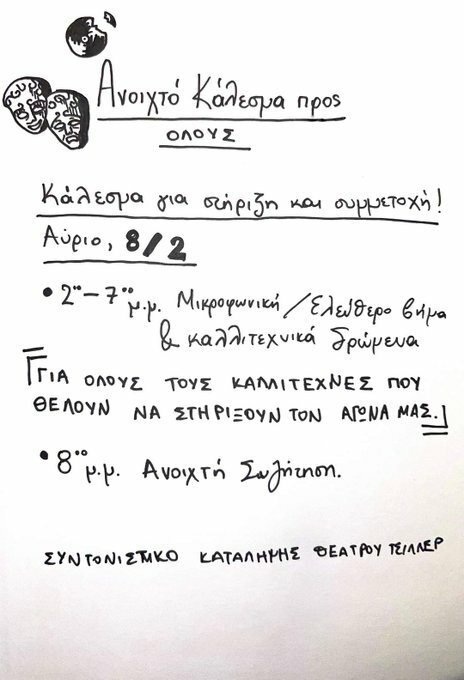 Ανοιχτό Κάλεσμα προς
ΟΛΟΥΣ
Κάλεσμα για στήριξη και συμμετοχή!
Αύριο, 8/2
• 2⁰⁰-7⁰⁰ μ.μ. Μικροφωνική/Ελεύθερο βήμα
& καλλιτεχνικά δρώμενα
「ΓΙΑ ΟΛΟΥΣ ΤΟΥΣ ΚΑΛΛΙΤΕΧΝΕΣ ΠΟΥ
ΘΕΛΟΥΝ ΝΑ ΣΤΗΡΙΞΟΥΝ ΤΟΝ ΑΓΩΝΑ ΜΑΣ.」
• 8⁰⁰ μ.μ. Ανοιχτή Συζήτηση.
ΣΥΝΤΟΝΙΣΤΙΚΟ ΚΑΤΑΛΗΨΗΣ ΘΕΑΤΡΟΥ ΤΣΙΛΛΕΡ